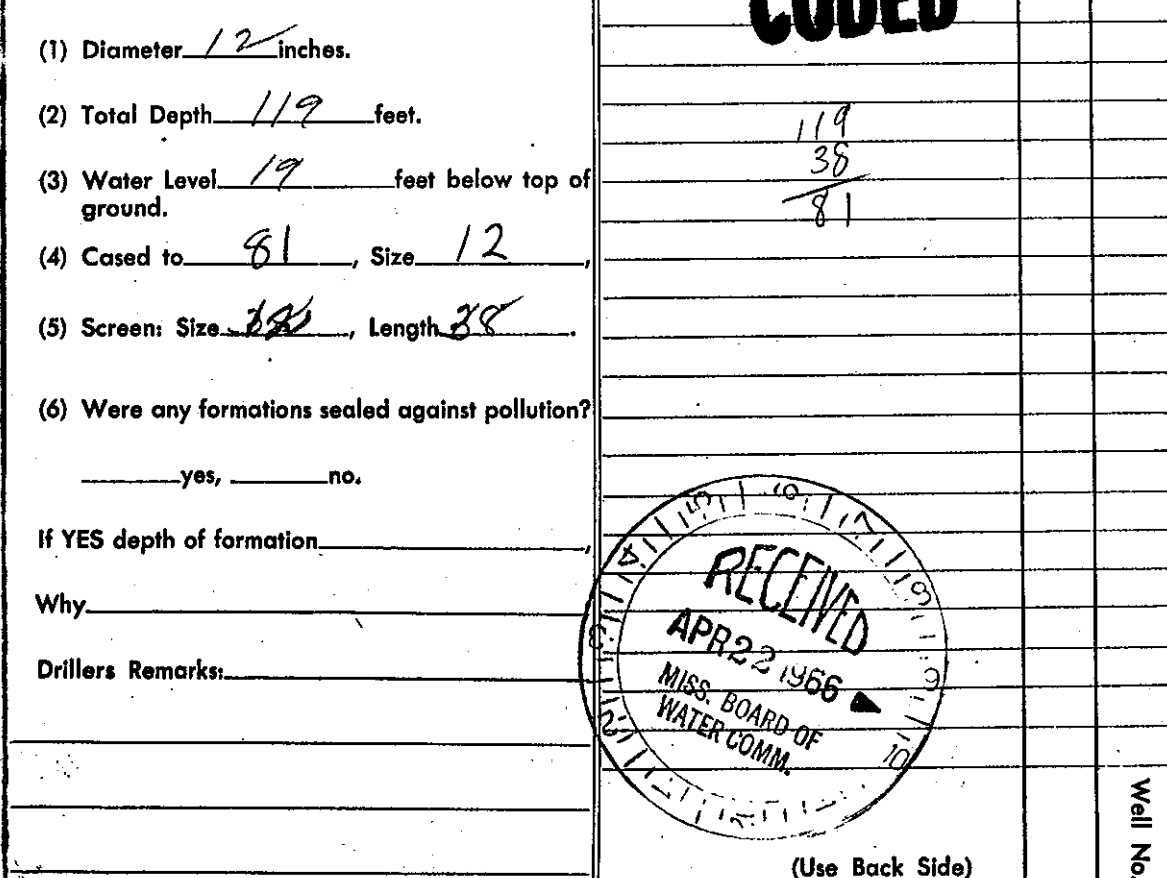 CODED
(1) Diameter 12 inches.
(2) Total Depth 119 feet.
(3) Water Level 19 feet below top of
ground.
(4) Cased to 81, Size 12,
(5) Screen: Size, Length 38.
(6) Were any formations sealed against pollution?
yes, no.
If YES depth of formation,
Why
Drillers Remarks:
119
38
81
1 2 3 4 5 6 7 8 9 10
RECEIVED
APR 22 1966
MISS. BOARD OF
WATER COMM.
(Use Back Side)
Well No.